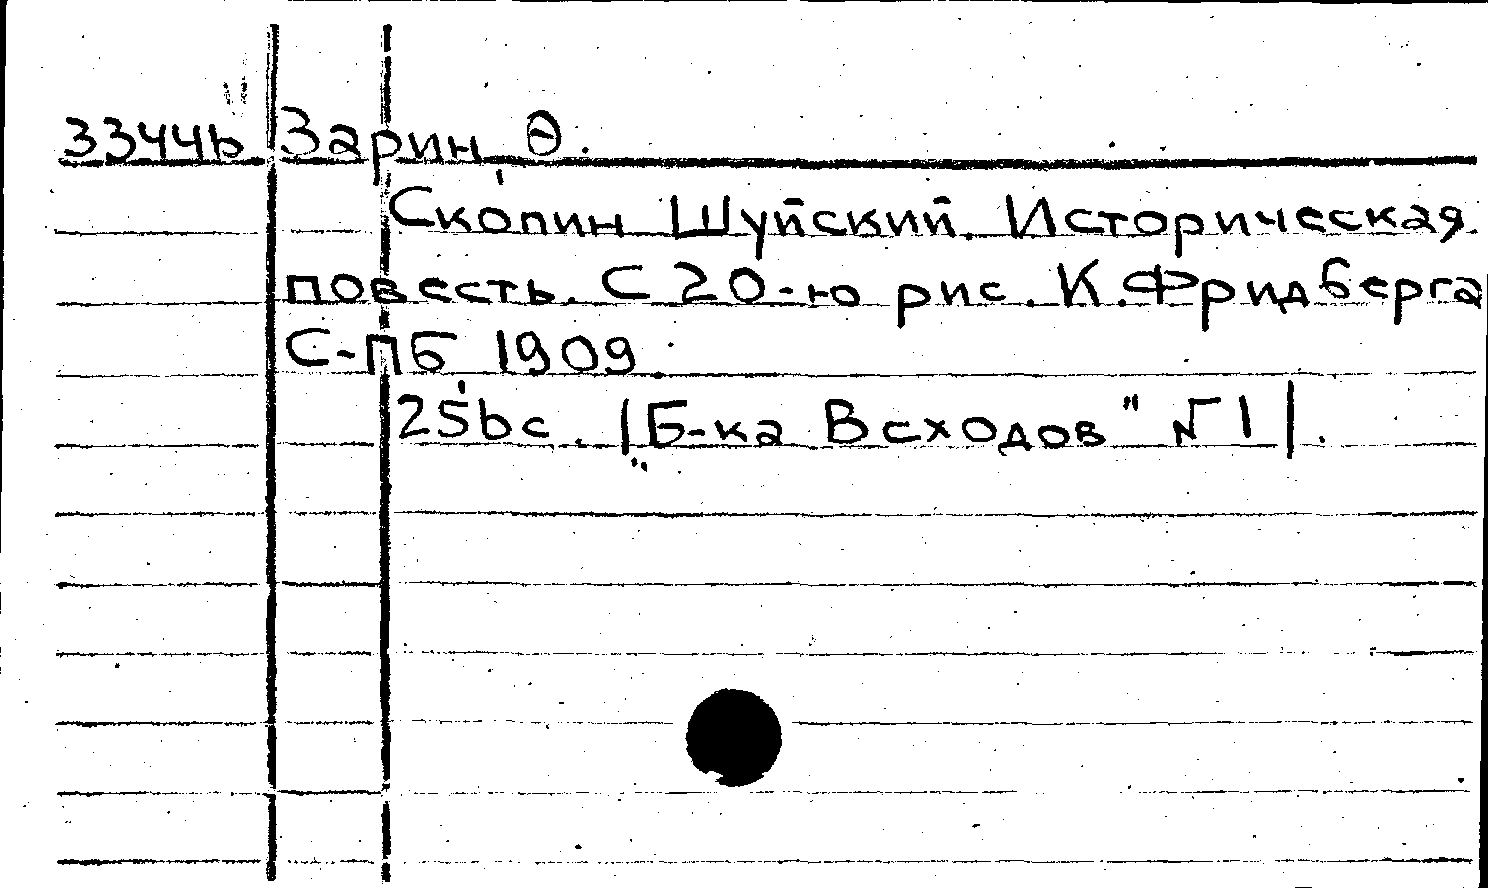 33446 Зарин Ѳ.
Скопин Шуйский. Историческая
повесть. С 20-ю рис. К. Фридберга
С-ПБ 1909.
256 с. |„Б-ка Всходов" № 1|.